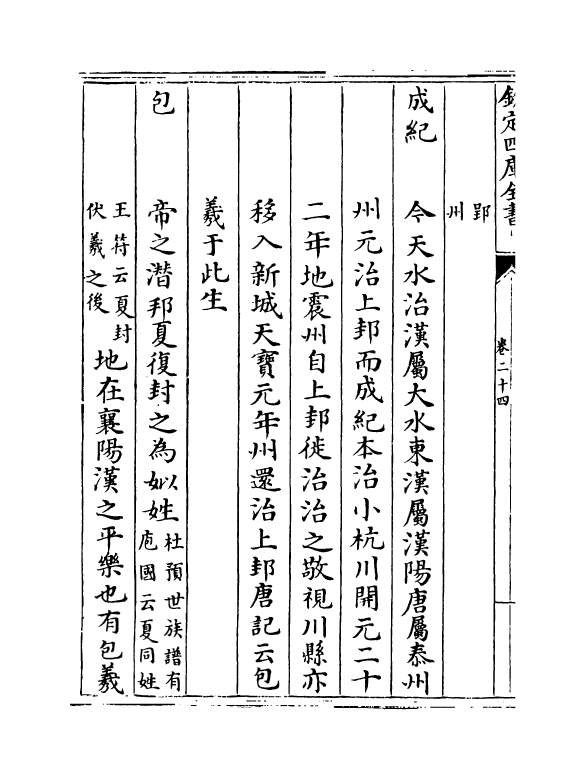 欽定四庫全書
卷二十四
郢
州
成紀
今天水治漢屬大水東漢屬漢陽唐屬泰州
州元治上邽而成紀本治小杭川開元二十
二年地震州自上邽徙治治之敬視川縣亦
移入新城天寶元年州還治上邽唐記云包
羲于此生
包
帝之潛邦夏復封之為姒姓杜預世族譜有
庖國云夏同姓
王符云夏封
伏羲之後
地在襄陽漢之平樂也有包羲